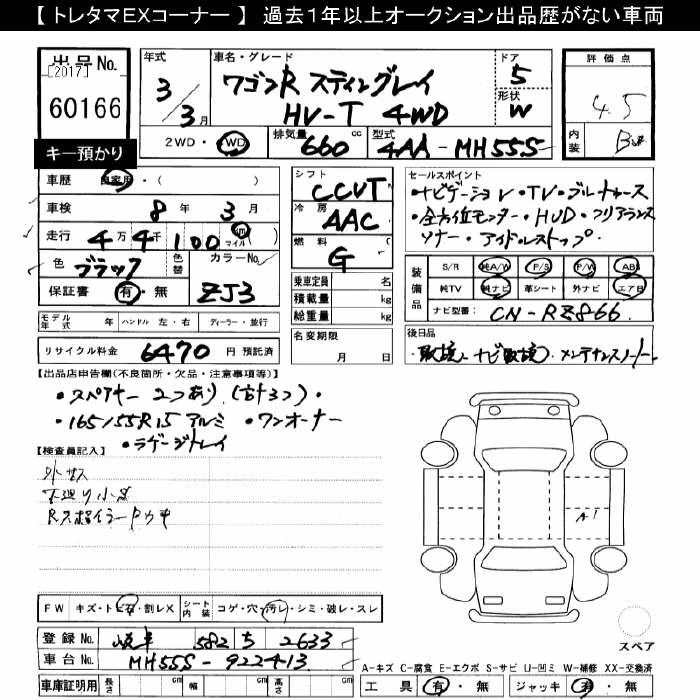 【 トレタマEXコーナー 】 過去１年以上オークション出品歴がない車両
出品No.
[2017]
60166
キー預かり
年式
3/3月
車名・グレード
ワゴンR スティングレイ
HV-T 4WD
ドア
5
形状
W
評価点
4.5
内装
B
2WD・4WD
排気量
660 cc
型式
4AA-MH55S
車歴 自家用・( )
車検 8年 3月
走行 4万4千100 km マイル
色 ブラック 色替 カラーNo.
保証書 有・無 ZJ3
モデル年式 年 ハンドル 左・右 ディーラー・並行
リサイクル料金 6470 円 預託済
シフト
CCVT
冷房
AAC
燃料
G
乗車定員 名
積載量 kg
総重量 kg
名変期限
月 日
セールスポイント
・ナビゲーション・TV・ブルートゥース
・全方位モニター・HUD・クリアランス
ソナー・アイドルストップ.
装備品
S/R 純A/W P/S P/W ABS
純TV 純ナビ 革シート 外ナビ エアB
ナビ型番: CN-RZ866
後日品
・取説・ナビ取説・メンテナンスノート
【出品店申告欄(不良箇所・欠品・注意事項等)】
・スペアキー 2つあり.(計3つ)・
・165/55R15 アルミ ・ワンオーナー
・ラゲージトレイ
【検査員記入】
外 サス
下廻り小サ
A1
FW キズ・トビ石・割レX シート内装 コゲ・穴・汚レ・シミ・破レ・スレ
登録No. 岐阜 582 ち 2633
車台No. MH55S-922413
車庫証明用 長さ cm 幅 cm 高さ cm
スペア
A-キズ C-腐食 E-エクボ S-サビ U-凹ミ W-補修 XX-交換済
工具 有・無 ジャッキ 有・無